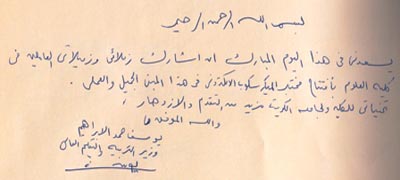 بسم الله الرحمن الرحيم
يسعدني في هذا اليوم المبارك ان اشارك زملائي وزميلاتي العاملين في
كلية العلوم بأفتتاح مختبر الميكرسكوب الالكتروني في هذا المبنى الجميل والعملي
تمنياتي للكلية ولجامعة الكويت مزيد من التقدم والازدهار ،
والله الموفق
يوسف حمد الابراهيم
وزير التربية والتعليم العالي